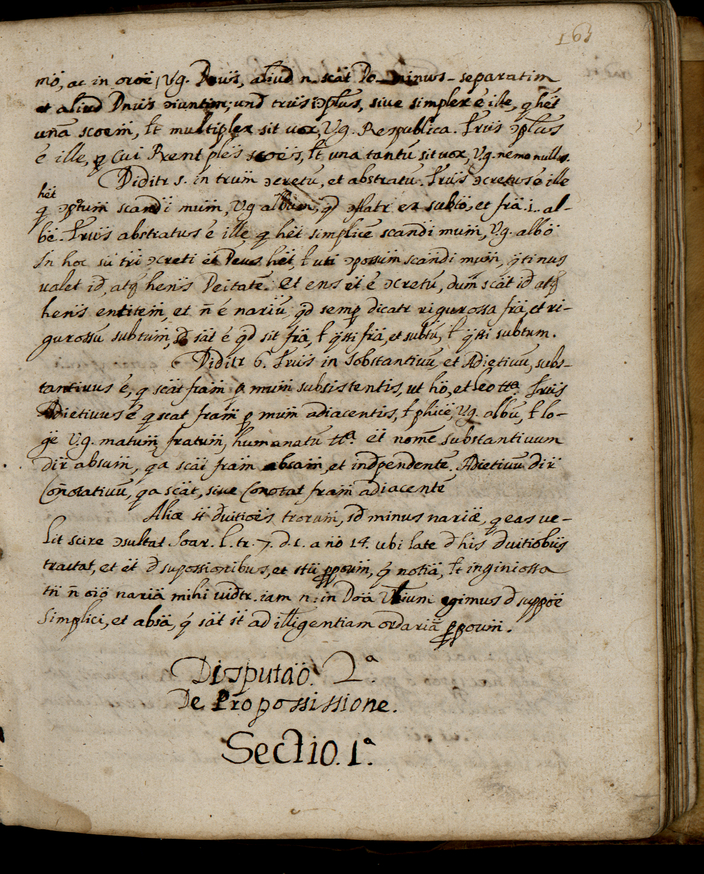 163
mō, ac in oroē, Vg. Dnus, aliud n scāt Do-minus-separatim
et aliud Dnus ɔiuntim; und trūs ɔplus, sive simplex ē ille, q hēt
unā scoem, łt multiplex sit vox, Vg. Respublica. Trus ɔplus
ē ille, q cui Rent ples scoēs, łt una tantū sit vox, Vg. nemo nullus.
Diditr 5. in trum ɔcretū, et abstratū. Trus ɔcretus ē ille
hēt
q ɔptum scandi mum, Vg album, qd ɔflatr ex subto, et frā .i. al-
bē. Trus abstratus ē ille q hēt simplicē scandi mum, Vg. albō
In hoc su tri ɔcreti ēt Deus, hēt, ł uti ɔpossum scandi mum, q̄ti nus
valet id, atq henis Deitatē. Et ens et ē ɔcretū, dum scāt id atq
henis entitem, et n̄ ē nariū qd semp dicatr rigurossa frā, et ri-
gurossū subtum, sd sāt ē qd sit frā, ł q̄si frā, et subtū, ł q̄si subtum.
Diditr 6. Trus in Sobstantivū et Adietivū, subs-
tantivus ē, q scāt fram p mum subsistentis, ut hō, et leo ttᵃ. Trus
Adietivus ē q scat fram p mum adiacentis, ł phice, Vg. albū, ł lo-
ge Vg. matum, fratum, humanatū ttᵃ. et nomē substantivum
dir absum, qa scāt fram absam, et indpendente. Adietivū dir
Connotativū, qa scāt, sive Conotat fram adiacentē
Aliæ st dvitioēs trorum, sd minus nariæ, q eas ve-
lit scire ɔsultat Soar. l. tr. 7. d. 1. a nō 14. ubi late d his dvitiobus
tratat, et et d supossionibus, et stū pposm, q̄ notiā, łt inginiossa
tn n̄ oiō naria mihi vidtr. iam n. in Doā Vlium egimus d suppoē
Simplici, et absā, q̄ sāt st ad illigentiam ordariā pposm.
Disputaō. 2ᵃ
De Propossissione.
Sectio. 1ᵃ.